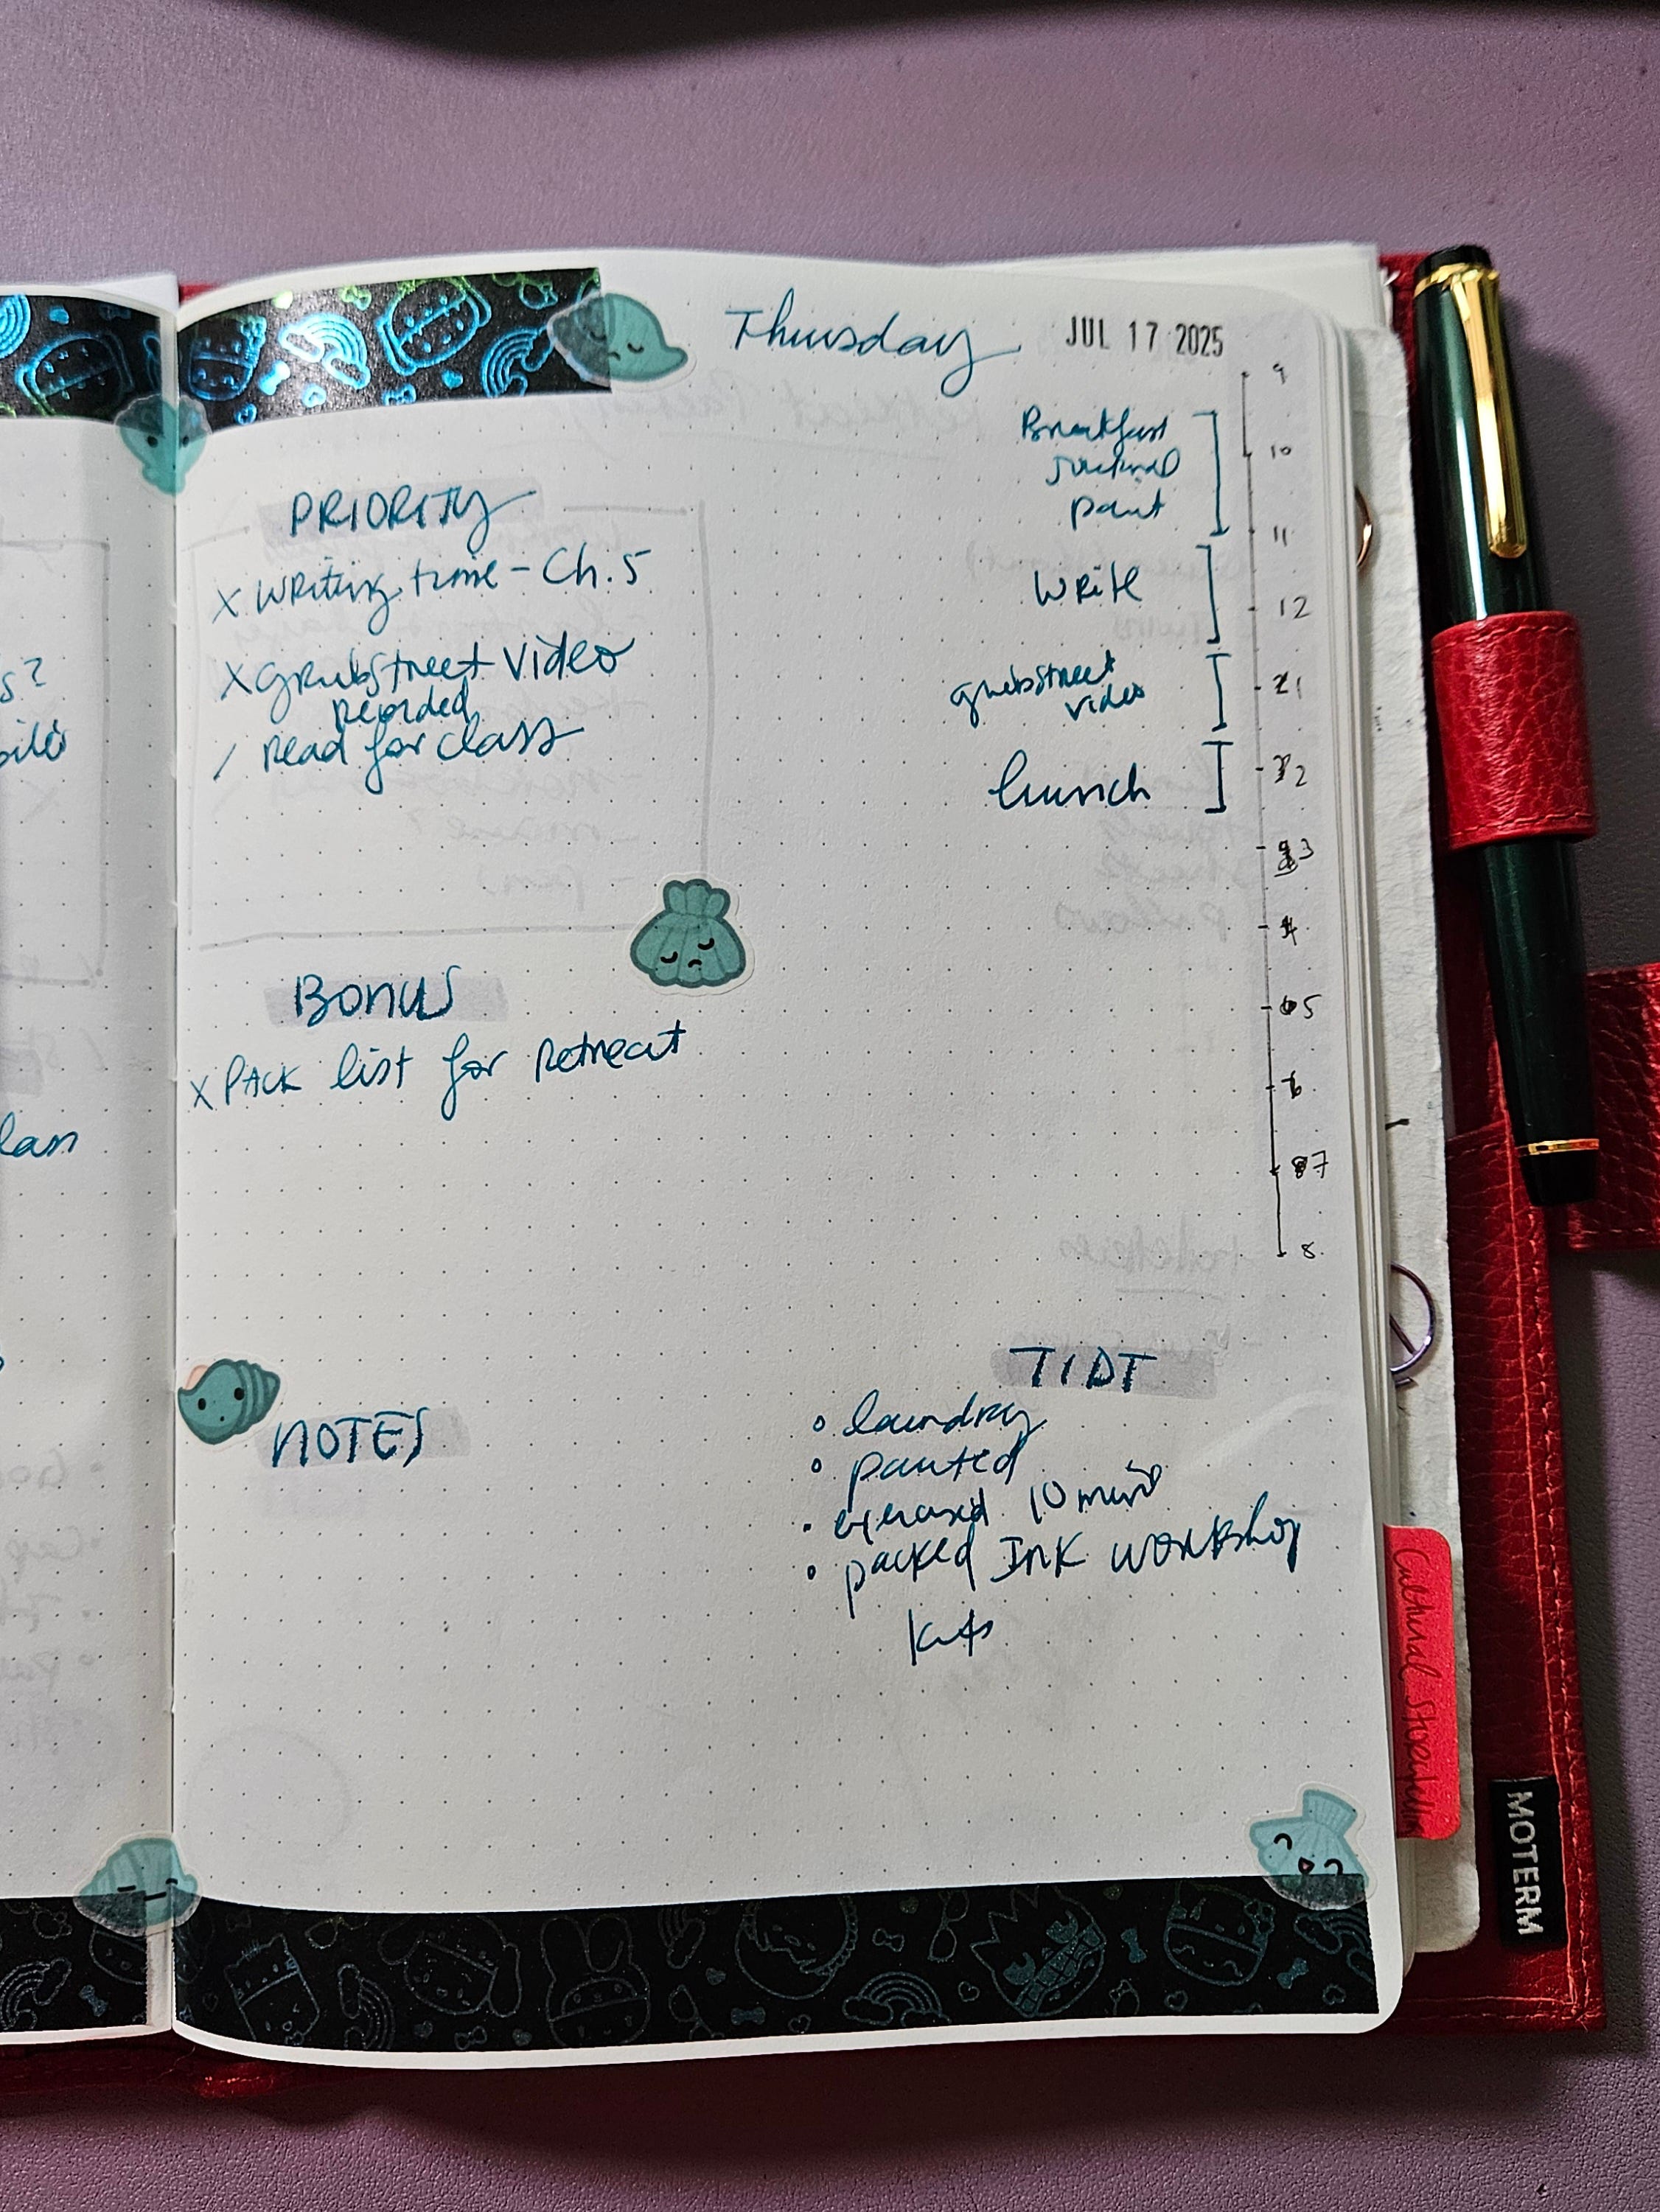 Thursday JUL 17 2025
PRIORITY
X Writing time - Ch. 5
X grubstreet video
recorded
/ Read for class
Bonus
X PACK list for Retreat
NOTES
9
Breakfast
10
journal
paint
11
Write
12
1
grubstreet
video
2
lunch
3
4
5
6
7
8
TIDT
laundry
painted
exercised 10 mins
packed Ink workshop
kits
s?
lan
Cultural
MOTERM